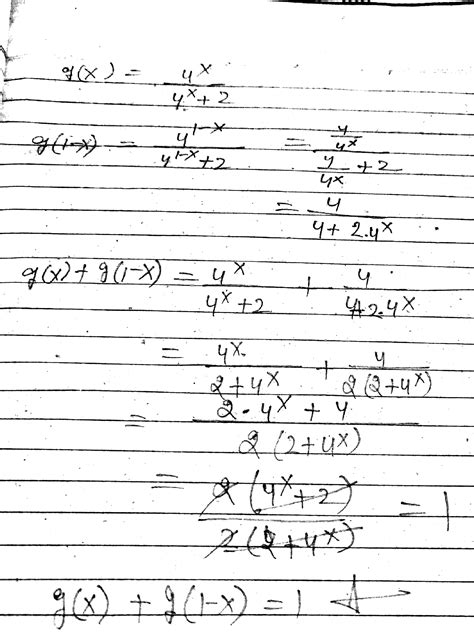 g(x) = 4^x / (4^x + 2)
g(1-x) = 4^(1-x) / (4^(1-x) + 2) = (4 / 4^x) / (4 / 4^x + 2)
= 4 / (4 + 2.4^x)
g(x) + g(1-x) = 4^x / (4^x + 2) + 4 / (4 + 2.4^x)
= 4^x / (2 + 4^x) + 4 / (2 (2 + 4^x))
= (2 . 4^x + 4) / (2 (2 + 4^x))
= 2 (4^x + 2) / (2 (2 + 4^x)) = 1
g(x) + g(1-x) = 1